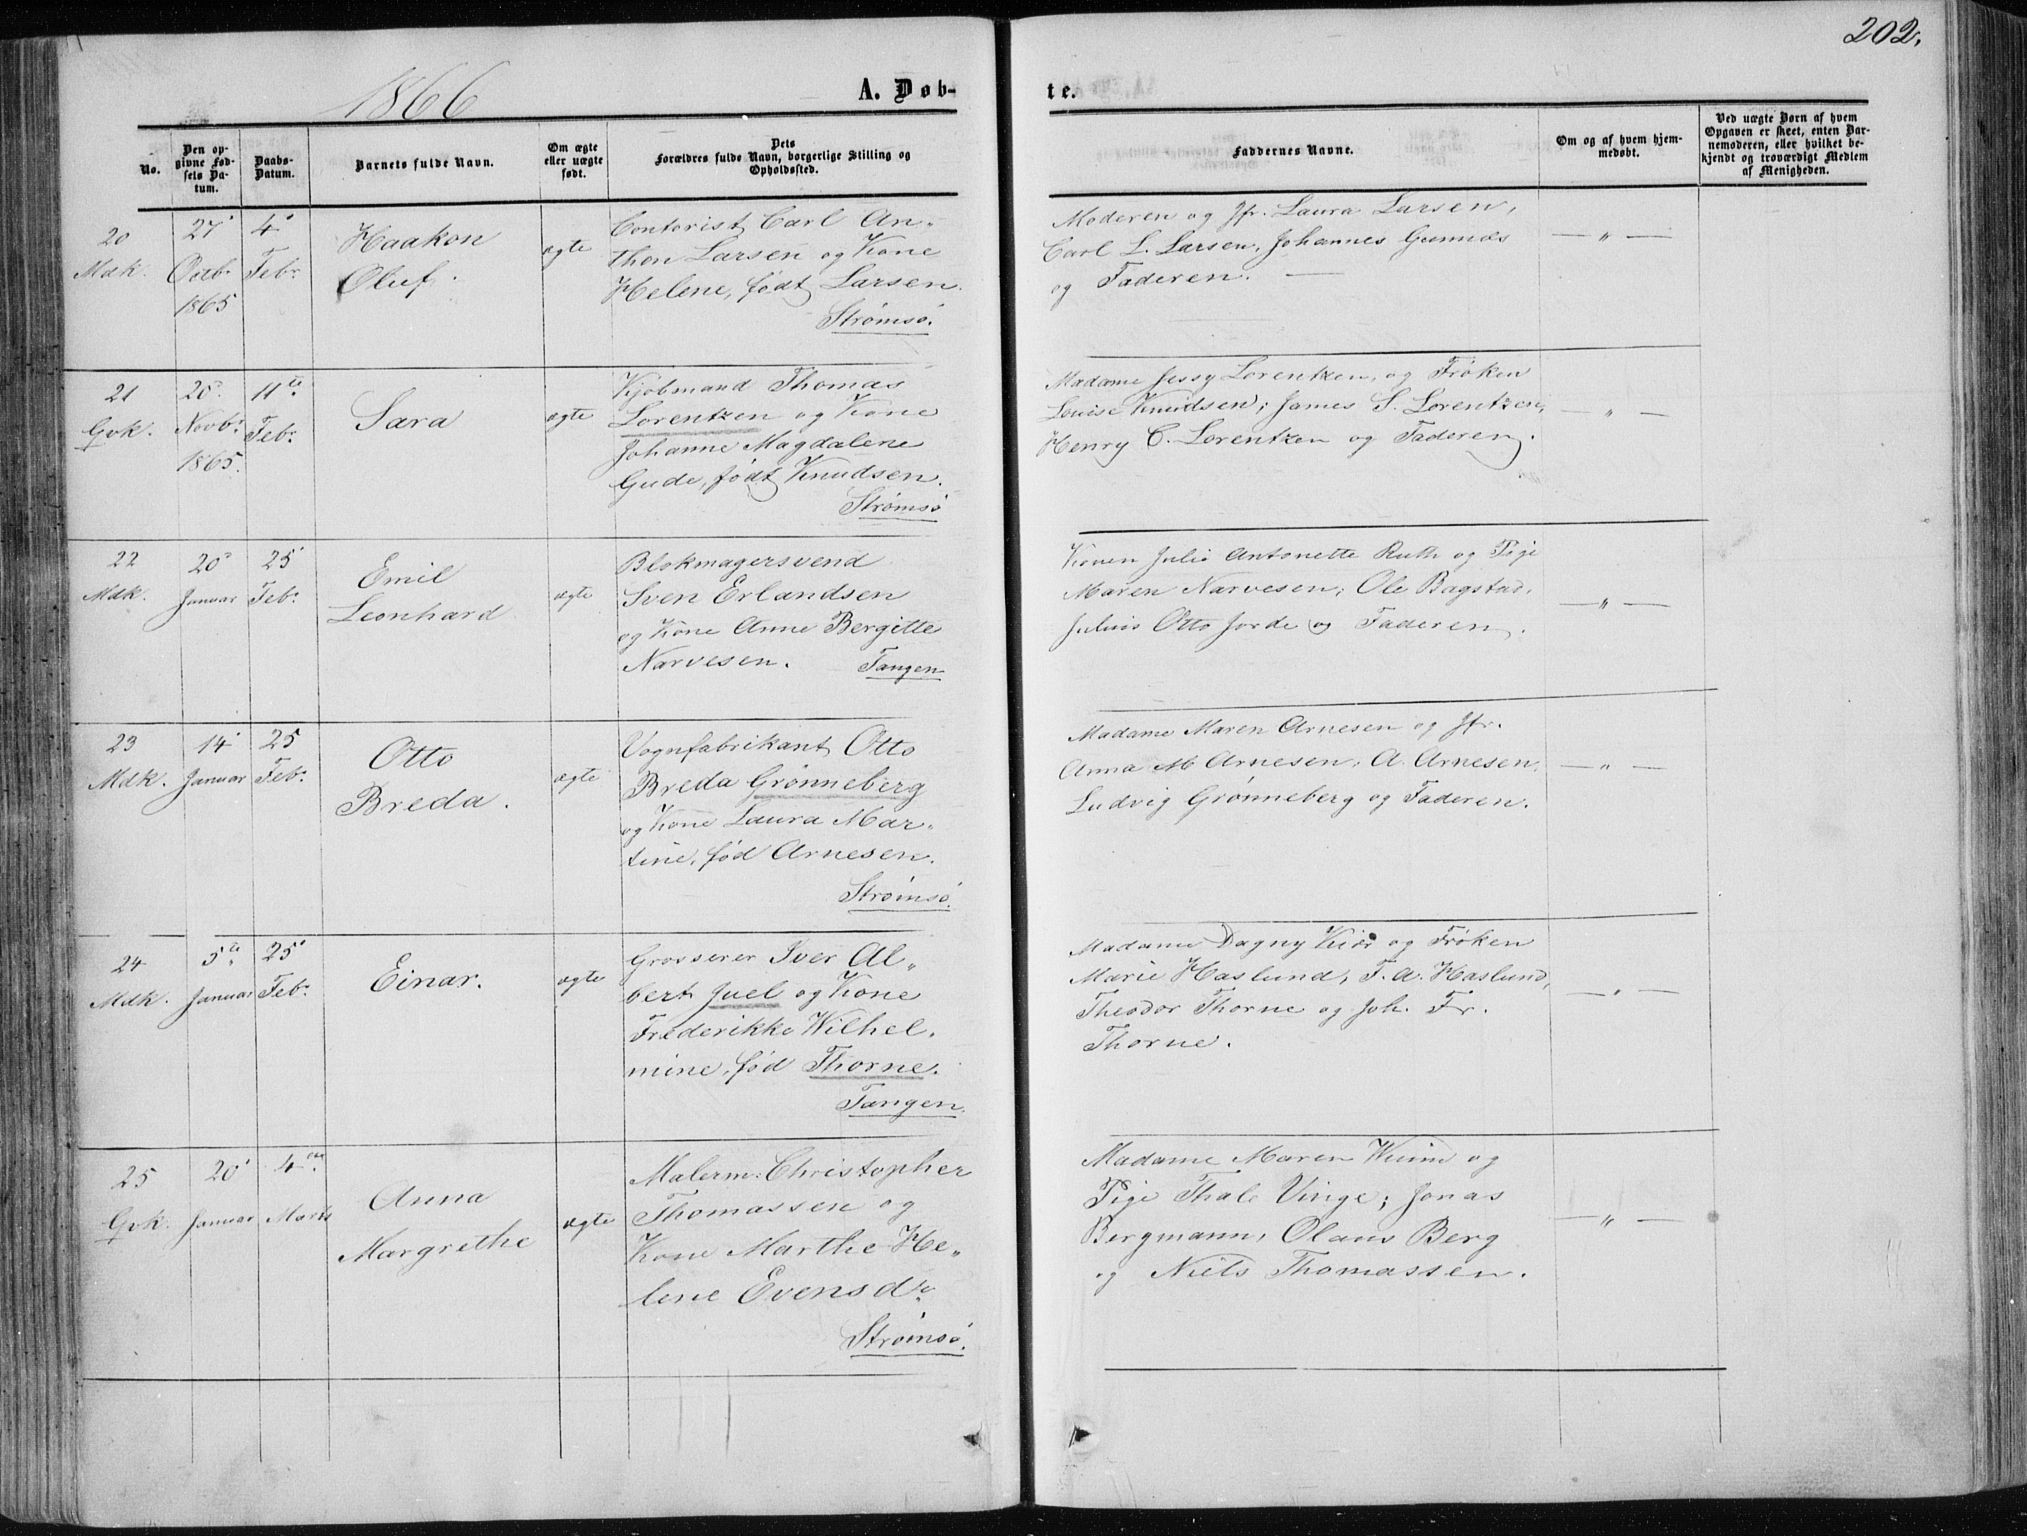 202.
1866
A. Døb-
te.
No.
Den op-
givne Fød-
sels Da-
tum.
Daabs-
Datum.
Barnets fulde Navn.
Om ægte
eller uægte
født.
Dets
Forældres fulde Navn, borgerlige Stilling og
Opholdssted.
Faddernes Navne.
Om og af hvem hjem-
medøbt.
Ved uægte Børn af hvem
Opgaven er skeet, enten Bar-
nemoderen, eller hvilket be-
kjendt og troværdigt Medlem
af Menigheden.
20
Mdk.
27'
Octbr
1865
4'
Febr.
Haakon
Oluf.
ægte
Contorist Carl An-
thon Larsen og Kone
Helene, født Larsen.
Strømsø.
Moderen og Jfr. Laura Larsen,
Carl L. Larsen, Johannes
og Faderen. —
— „ —
21
Qvk.
Novbr
1865.
11te
Febr.
Sara
ægte
Kjøbmand Thomas
Lorentzen og Kone
Johanne Magdalene
Gude, født Knudsen.
Strømsø
Madame Jessy Lorentzen, og Frøken
Louise Knudsen; James S. Lorentzen,
Henry C. Lorentzen og Faderen.
— „ —
22
Mdk.
20'
Januar
25'
Febr.
Emil
Leonhard
ægte
Blokmagersvend
Sven Erlandsen
og Kone Anne Bergitte
Narvesen. Tangen
Konen Julie Antonette Ruth og Pige
Maren Narvesen; Ole Bagstad,
Julius Otto Jorde og Faderen.
— „ —
23
Mdk.
14'
Januar
25
Febr.
Otto
Breda.
ægte
Vognfabrikant Otto
Breda Grønneberg
og Kone Laura Mar-
tine, fød Arnesen.
Strømsø.
Madame Maren Arnesen og Jfr.
Anna M Arnesen, A. Arnesen,
Ludvig Grønneberg og Faderen.
— „ —
24
Mdk.
5te
Januar
25'
Febr.
Einar.
ægte
Grosserer Iver Al-
bert Juel og Kone
Frederikke Wilhel-
mine, fød Thorne.
Tangen.
Madame Dagny Kiær og Frøken
Marie Haslund, F. A. Haslund,
Theodor Thorne og Joh. Fr.
Thorne.
— „ —
25
Qvk.
20'
Januar
4de
Marts
Anna
Margrethe
ægte
Malerm: Christopher
Thomassen og
Kone Marthe He-
lene Evensdr.
Strømsø.
Madame Maren og
Pige Thale Vinge; Jonas
Bergmann, Olaus Berg
og Niels Thomassen.
— „ —